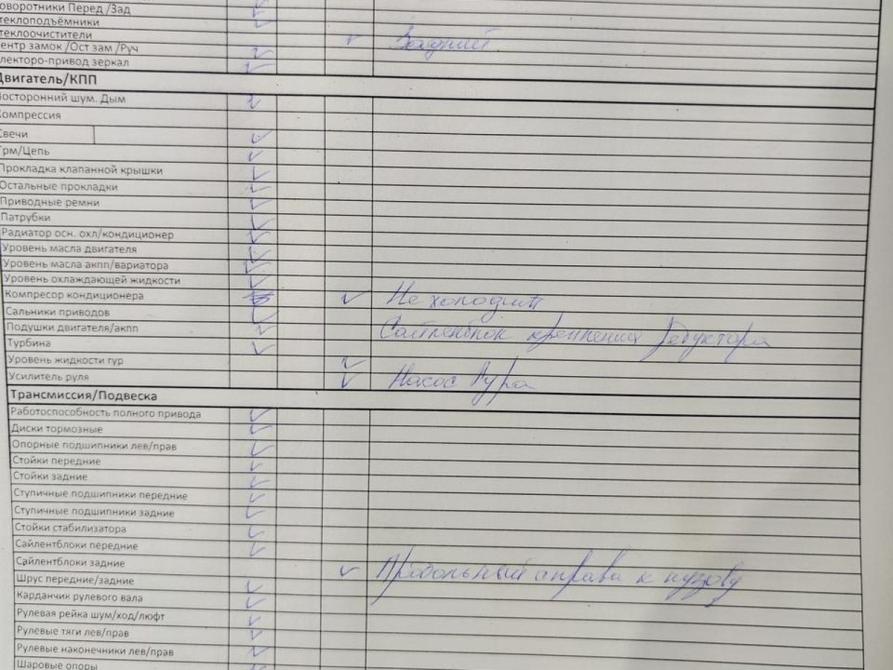 оворотники Перед /Зад
теклоподъёмники
теклоочистители Задний
ентр замок /Ост зам /Руч
лекторо-привод зеркал
Двигатель/КПП
Посторонний шум. Дым
Компрессия
Свечи
Грм/Цепь
Прокладка клапанной крышки
Остальные прокладки
Приводные ремни
Патрубки
Радиатор осн. охл/кондиционер
Уровень масла двигателя
Уровень масла акпп/вариатора
Уровень охлаждающей жидкости
Компресор кондиционера Не холодит
Сальники приводов
Подушки двигателя/акпп Сайленблок крепления редуктора
Турбина
Уровень жидкости гур
Усилитель руля Насос Гура
Трансмиссия/Подвеска
Работоспособность полного привода
Диски тормозные
Опорные подшипники лев/прав
Стойки передние
Стойки задние
Ступичные подшипники передние
Ступичные подшипники задние
Стойки стабилизатора
Сайлентблоки передние
Сайлентблоки задние Продольный справа к кузову
Шрус передние/задние
Карданчик рулевого вала
Рулевая рейка шум/ход/люфт
Рулевые тяги лев/прав
Рулевые наконечники лев/прав
Шаровые опоры